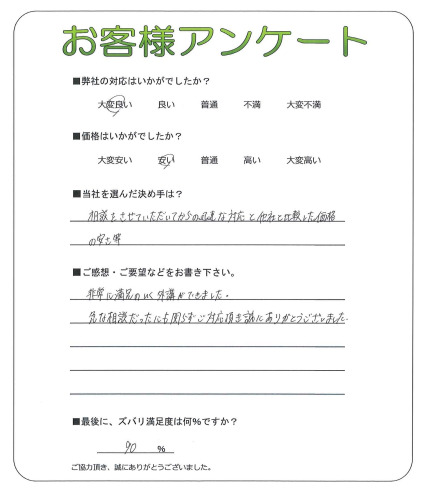 お客様アンケート
■弊社の対応はいかがでしたか？
大変良い 良い 普通 不満 大変不満
■価格はいかがでしたか？
大変安い 安い 普通 高い 大変高い
■当社を選んだ決め手は？
相談をさせていただいてからの迅速な対応と他社と比較した価格
の安さ等
■ご感想・ご要望などをお書き下さい。
非常に満足のいく外構ができました。
急な相談だったにも関らずご対応頂き誠にありがとうございました。
■最後に、ズバリ満足度は何％ですか？
90 ％
ご協力頂き、誠にありがとうございました。